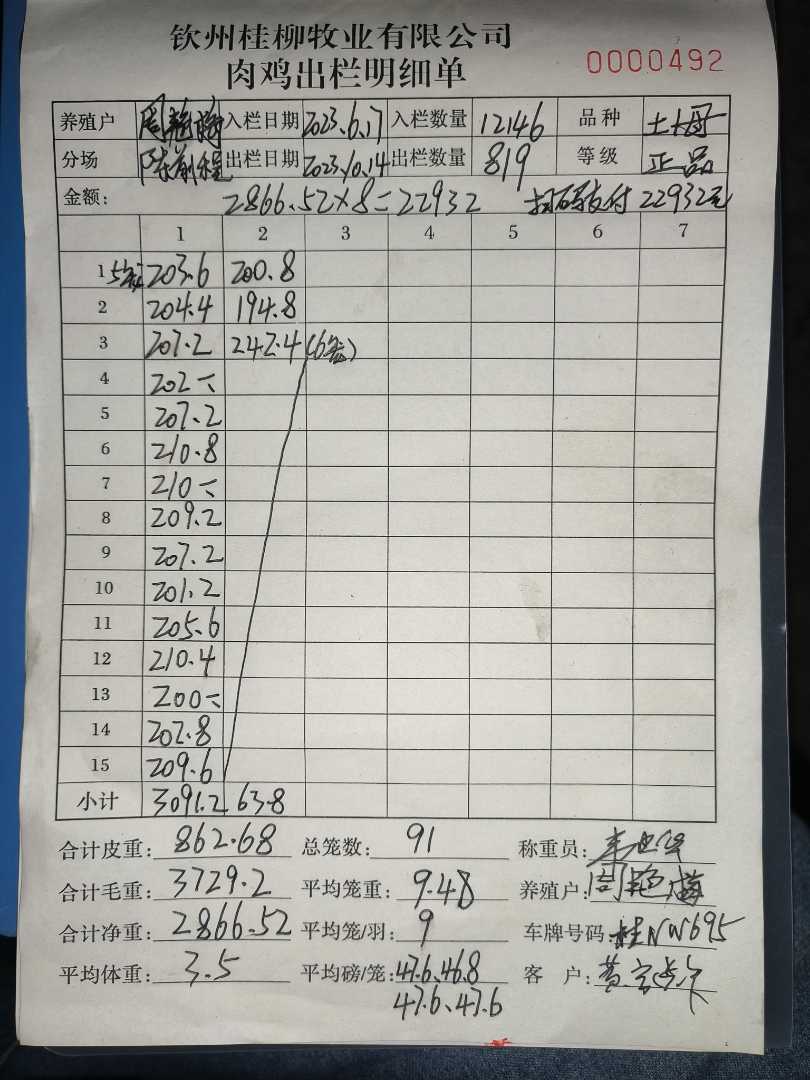 钦州桂柳牧业有限公司
肉鸡出栏明细单 0000492
养殖户 周艳梅 入栏日期 2023.6.17 入栏数量 12146 品种 土母
分场 陈前程 出栏日期 2023.10.14 出栏数量 819 等级 正品
金额: 2866.52×8=22932 扫码支付22932元
1 2 3 4 5 6 7
1 5笼 203.6 200.8
2 204.4 194.8
3 207.2 242.4 (6笼)
4 202
5 207.2
6 210.8
7 210
8 209.2
9 207.2
10 201.2
11 205.6
12 210.4
13 200
14 202.8
15 209.6
小计 3091.2 63.8
合计皮重: 862.68 总笼数: 91 称重员:
合计毛重: 3729.2 平均笼重: 9.48 养殖户: 周艳梅
合计净重: 2866.52 平均笼/羽: 9 车牌号码: 桂NW695
平均体重: 3.5 平均磅/笼: 47.6、46.8 客 户:
47.6、47.6